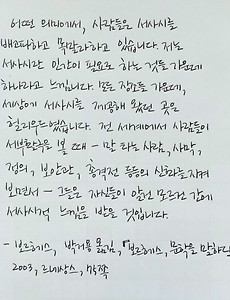 어떤 의미에서, 사람들은 서사시를
배고파하고 목말라하고 있습니다. 저는
서사시란 인간이 필요로 하는 것들 가운데
하나라고 느낍니다. 모든 장소들 가운데,
세상에 서사시를 제공해 왔던 곳은
헐리우드였습니다. 전 세계에서 사람들이
서부극을 볼 때 - 말 타는 사람, 사막,
정의, 보안관, 총격전 등등의 신화를 지켜
보면서 - 그들은 자신들이 알건 모르건 간에
서사시적 느낌을 받을 것입니다.
- 보르헤스, 박거용 옮김, 『보르헤스, 문학을 말하다』
2003, 르네상스, 쪽